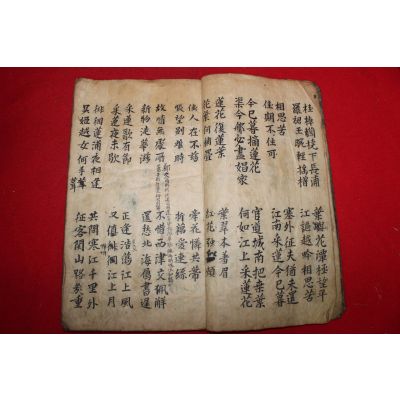 桂棹蘭橈下長浦 葉嶼花潭極望平
羅裙玉腕輕搖櫓 江謳越吟相思苦
相思苦 塞外征夫猶未還
佳期不住可 江南采蓮今已暮
今已暮摘蓮花 官道城南把桑葉
渠今那必盡娼家 何如江上采蓮花
蓮花復蓮葉 葉翠本羞眉
花葉何稠疊 紅花強如頰
佳人在不茲 牽花憐共蒂
悵望別離時 折藕愛連絲
故情無處所 不惜西津交珮解
新物徒華滋 還愁北海鴈書遲
采蓮歌有節 正逢浩蕩江上風
采蓮夜未歇 又值徘徊江上月
徘徊蓮浦夜相逢 共問寒江千里外
吳姬越女何丰茸 征客關山路幾重